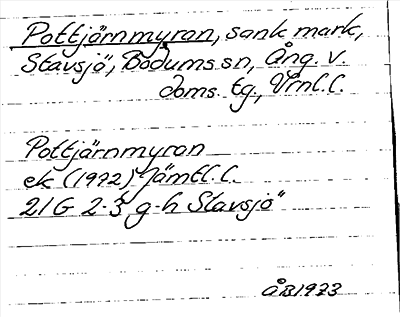 Pottjärnmyran, sank mark,
Stavsjö, Bodums sn, Ång. v.
doms. tg., Vrnl.l.
Pottjärnmyran
ek (1972) Jämtl.l.
21G 2-3 g-h Stavsjö"
ÅB1973